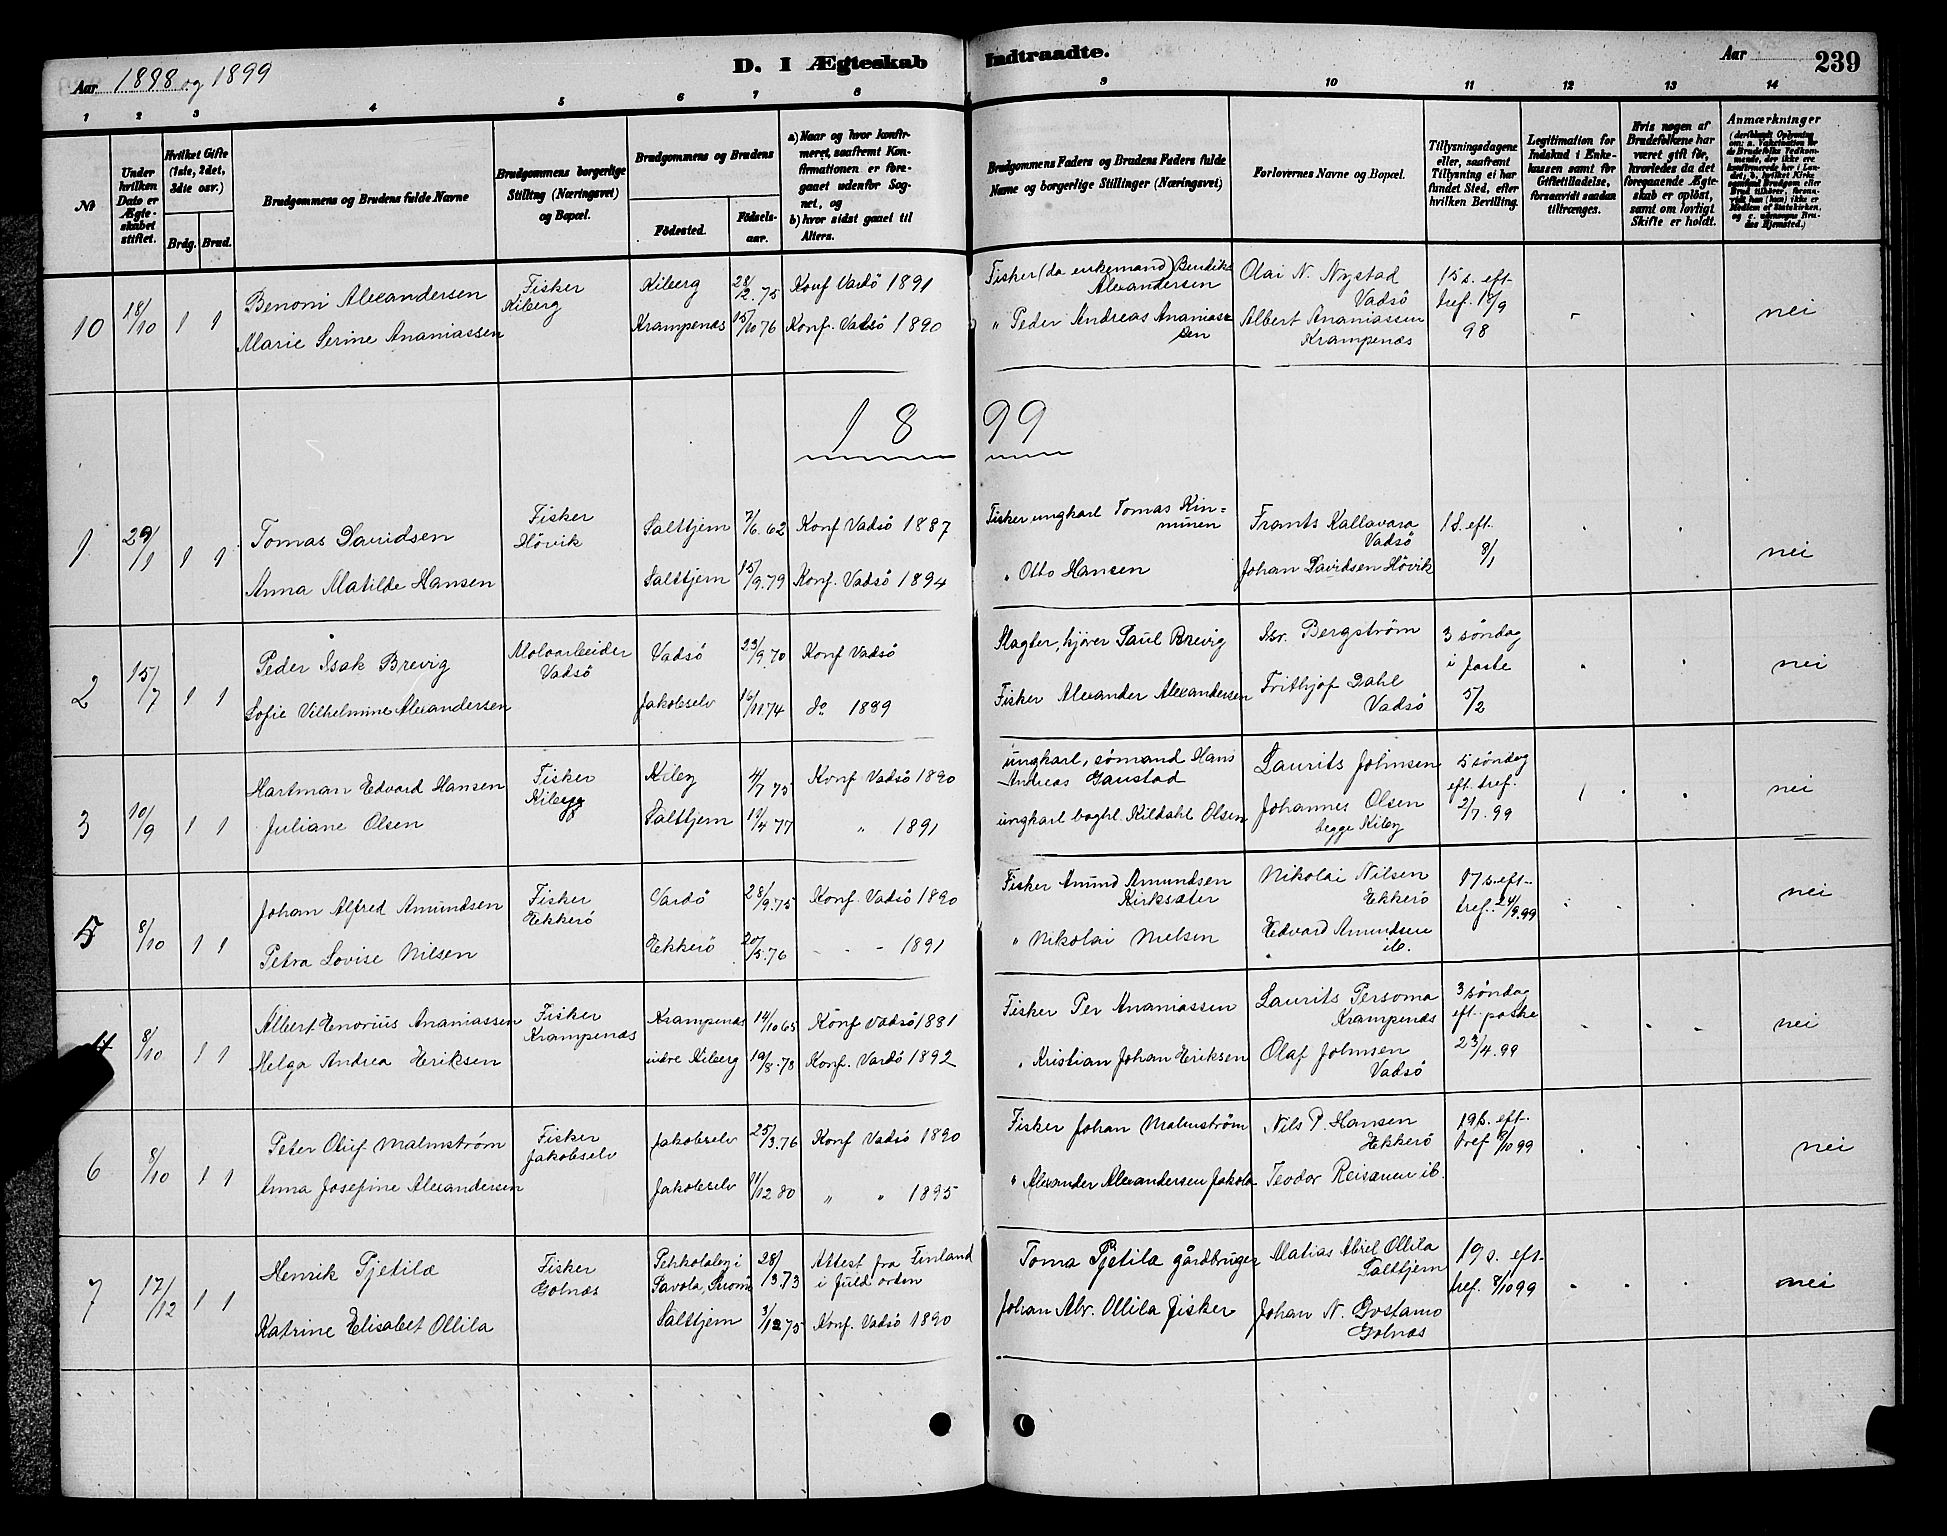 Aar 1898 og 1899
D. I Ægteskab Indtraadte.
Aar
239
1 2 3 4 5 6 7 8 9 10 11 12 13 14
No
Under hvilken Dato er Ægteskabet stiftet.
Hvilket Gifte (1ste, 2det, 3die osv.)
Brdg. Brud.
Brudgommens og Brudens fulde Navne
Brudgommens borgerlige Stilling (Næringsvei) og Bopæl.
Brudgommens og Brudens
Födested.
Födsels-aar.
a) Naar og hvor konfirmeret, saafremt Konfirmationen er foregaaet udenfor Sognet, og
b) hvor sidst gaaet til Alters.
Brudgommens Faders og Brudens Faders fulde Navne og borgerlige Stillinger (Næringsvei)
Forlovernes Navne og Bopæl.
Tillysningsdagene eller, saafremt Tillysning ei har fundet Sted, efter hvilken Bevilling.
Legitimation for Indskud i Enkekassen samt for Giftetilladelse, forsaavidt saadan tiltrænges.
Hvis nogen af Brudefolkene har været gift för, hvorledes da det foregaaende Ægteskab er oplöst, samt om lovligt Skifte er holdt.
Anmærkninger
10 18/10 1 1 Benoni Alexandersen Fisker Kiberg Kiberg 28/2.75 Konf Vadsö 1891 Fisker (da enkemand) Bendiks Alexandersen Olai N. Nystad Vadsö 15 s. eft. tref. 18/9 98 nei
Marie Serine Ananiassen Krampenæs 15/10 76 Konf. Vadsö 1890 " Peder Andreas Ananiassen Albert Ananiassen Krampenæs
1899
1 29/1 1 1 Tomas Davidsen Fisker Hövik Salttjern 7/6.62 Konf Vadsö 1887 Fisker ungkarl Tomas Kinnunen Frants Kallavara Vadsö 1 S. eft. 8/1 nei
Anna Matilde Hansen Salttjern 15/9.79 Konf. Vadsö 1894 " Otto Hansen Johan Davidsen Hövik
2 15/7 1 1 Peder Isak Brevig Moloarbeider Vadsö Vadsö 23/9.70 Konf Vadsö Slagter, kjörer Paul Brevig Isr. Bergström 3 söndag i faste 5/2 nei
Sofie Vilhelmine Alexandersen Jakobselv 16/11 74 do 1889 Fisker Alexander Alexandersen Frithjof Dahl Vadsö
3 10/9 1 1 Hartman Edvard Hansen Fisker Kiberg Kibeg 4/7 75 Konf Vadsö 1890 ungkarl, sömand Hans Andreas Gaustad Laurits Johnsen 5 söndag eft. tref. 2/7.99 nei
Juliane Olsen Salttjern 19/4 77 " 1891 ungkarl boghl. Kildahl Olsen Johannes Olsen begge Kibeg
5 8/10 1 1 Johan Alfred Amundsen Fisker Ekkerö Vardö 28/9.75 Konf. Vadsö 1890 Fisker Amund Amundsen Kirksæter Nikolai Nilsen Ekkerö 17 s. eft. tref. 24/9.99 nei
Petra Lovise Nilsen Ekkerö 20/5.76 - - 1891 " Nikolai Nielsen Edvard Amundsen ib.
4 8/10 1 1 Albert Enorius Ananiassen Fisker Krampenæs Krampenæs 14/10 65 Konf Vadsö 1881 Fisker Per Ananiassen Laurits Persoma Krampenæs 3 söndag eft. paske 23/4.99 nei
Helga Andrea Eriksen indre Kiberg 19/8.78 Konf. Vardö 1892 " Kristian Johan Eriksen Olaf Johnsen Vadsö
6 8/10 1 1 Peter Oluf Malmström Fisker Jakobselv Jakobselv 25/3.76 Konf Vadsö 1890 Fisker Johan Malmström Nils P. Hansen Ekkerö 19 s. eft. tref 8/10 99 nei
Anna Josefine Alexandersen Jakobselv 11/12 80 " " 1895 " Alexander Alexandersen Jakobs Teodor Reisænen ib.
7 17/12 1 1 Henrik Pjetilæ Fisker Golnæs Savola, 28/13.73 Attest fra Finland i fuld orden Toma Pjetila gårdbruger Matias Abrel Ollila Salttjern 19 s. eft. tref. 8/10 99 nei
Katrine Elisabet Ollila Salttjern 3/12 75 Konf. Vadsö 1890 Johan Abr. Ollila Fisker Johan N. Gostamo Golnæs